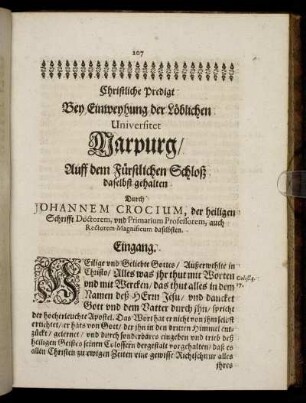 207
Christliche Predigt
Bey Einweyhung der Löblichen
Universitet
Marpurg/
Auff dem Fürstlichen Schloß
daselbst gehalten
Durch
JOHANNEM CROCIUM, der heiligen
Schrifft Doctorem, und Primarium Professorem, auch
Rectorem Magnificum daselbsten.
Eingang.
HEilige und Geliebte Gottes/ Außerwehlte in
Christo/ Alles was jhr thut mit Worten
und mit Wercken/ das thut alles in dem
Namen deß HErrn Jesu/ und dancket
Gott und dem Vatter durch jhn/ spricht
der hocherleuchte Apostel. Das Wort hat er nicht von jhm selbst
ertichtet/ er hats von Gott/ der jhn in den dritten Himmel ent-
zückt/ gelernet/ und durch sonderbares eingeben und trieb deß
heiligen Geistes seinen Colossern dergestalt vorgehalten/ daß es
allen Christen zu ewigen Zeiten eine gewisse Richtschnur alles
jhres
Coloss. 3.
17.